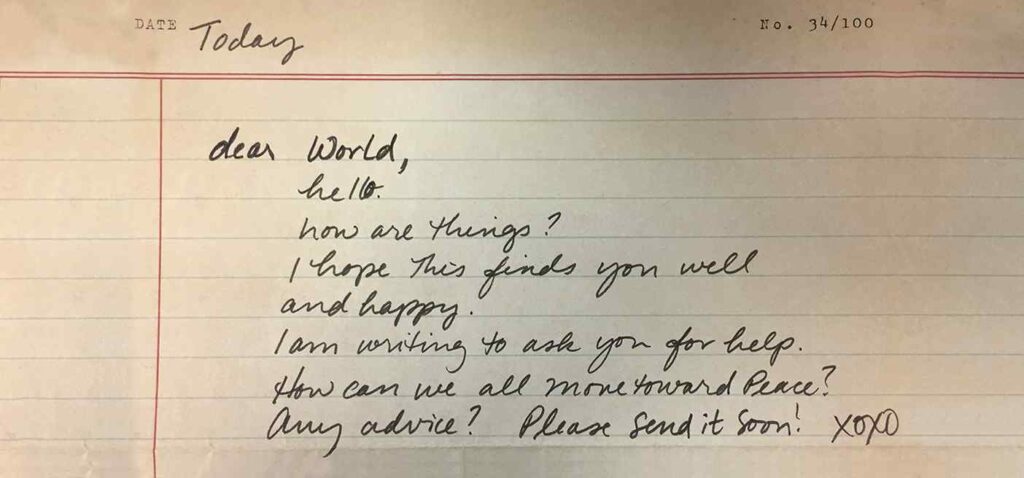 DATE Today No. 34/100
dear World,
hello.
how are things?
I hope this finds you well
and happy.
I am writing to ask you for help.
How can we all move toward Peace?
Any advice? Please Send it Soon! XOXO